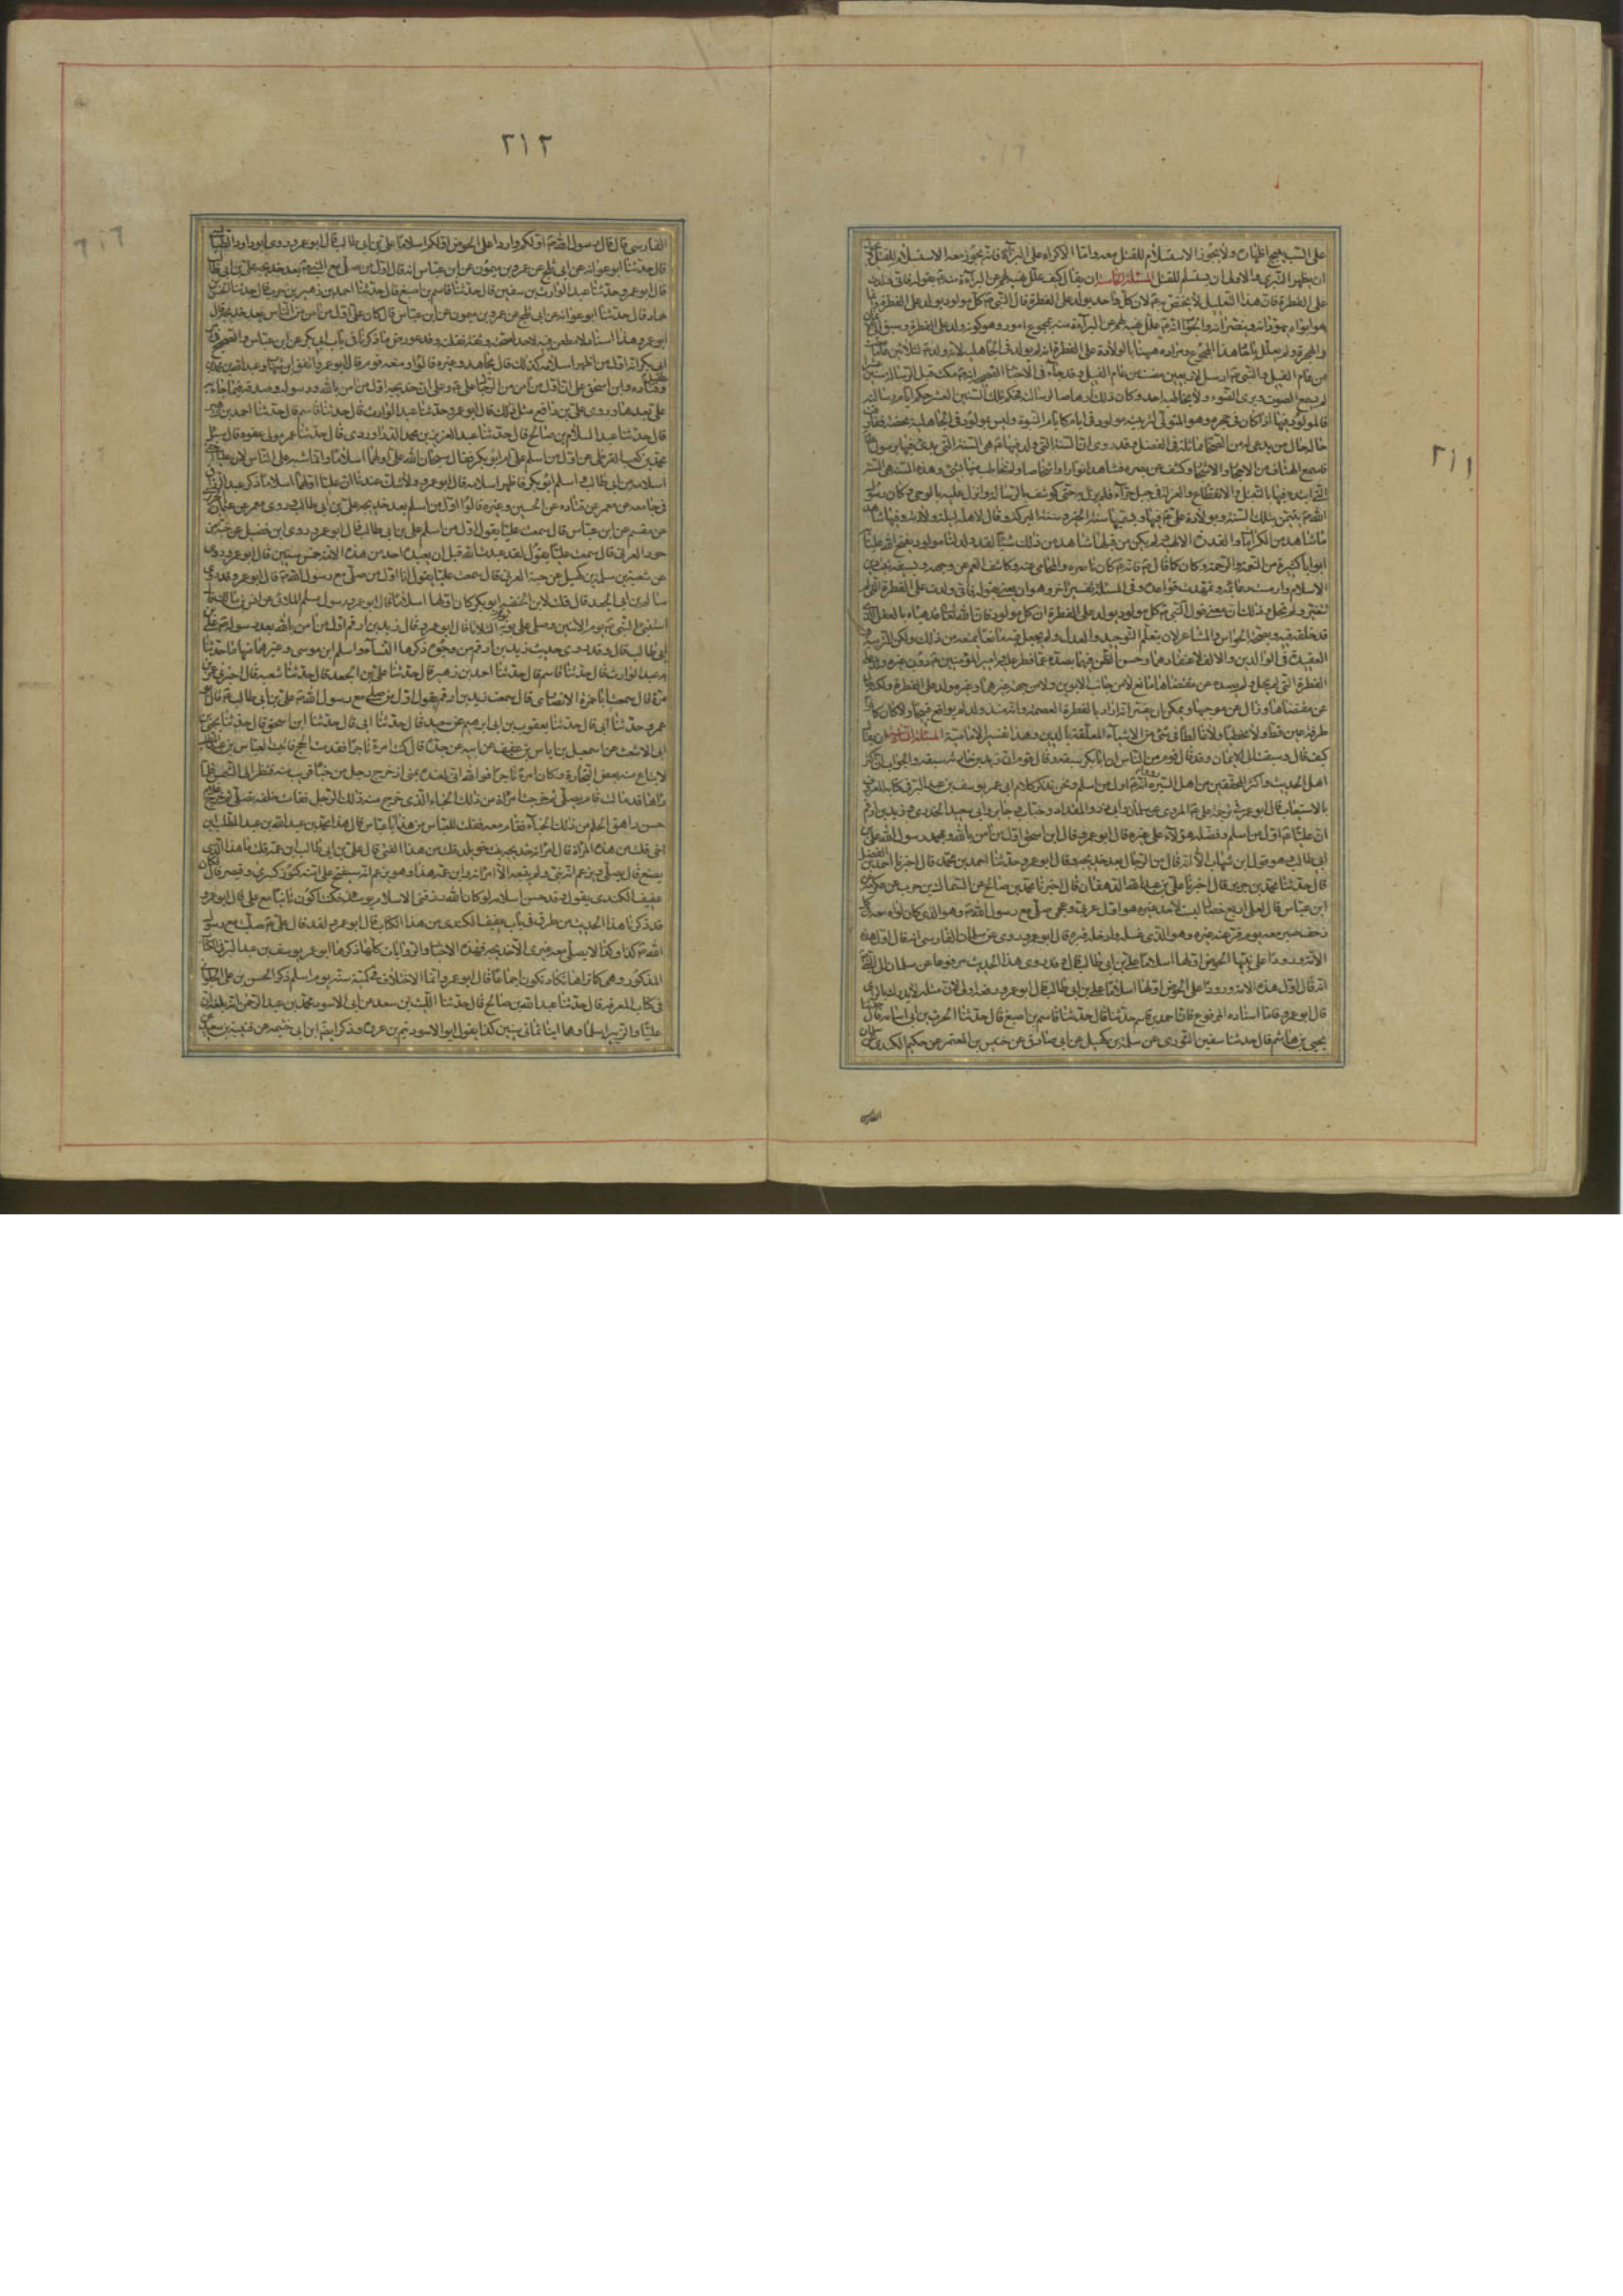 ٢١١
على السب يبيح اظهاره ولا يجوز الاستسلام للقتل معه واما الاكراه على البراءة فانه يجوز معه الاستسلام للقتل
ان يظهر التبري والاولى ان يستسلم للقتل المسئلة الخامسة ان يقال كيف علل نهيه لهم عن البراءة منه بقوله فاني ولدت
على الفطرة فان هذا التعليل لا يختص به لان كل واحد يولد على الفطرة قال النبي كل مولود يولد على الفطرة وانما
ابواه يهودانه وينصرانه والجواب انه علل نهيه لهم عن البراءة منه بمجموع امور وهو كونه ولد على الفطرة وسبق الى الايمان
والهجرة ولم يعلل باحاد هذا المجموع ومراده ههنا بالولادة على الفطرة انه لم يولد في الجاهلية لانه ولد لثلاثين عاما
من عام الفيل والنبي ارسل لاربعين مضت من عام الفيل وقد جاء في الاخبار الصحيحة انه مكث قبل الرسالة سنين
يسمع الصوت ويرى الضوء ولا يخاطبه احد وكان ذلك ارهاصا لرسالته فحكم تلك السنين العشر حكم ايام رسالته
فالمولود فيها اذا كان في حجره وهو المتولي لتربيته مولود في ايام كايام النبوة وليس بمولود في الجاهلية محضة ففارقت
حاله حال من يدعى له من الصحابة مماثلته في الفضل وقد روي ان السنة التي ولد فيها هي السنة التي بدئ فيها برسول الله
فاسمع الهتاف من الاحجار والاشجار وكشف عن بصره فشاهد انوارا واشخاصا ولم يخاطب فيها بشئ وهذه السنة هي السنة
التي ابتدأ فيها بالتبتل والانقطاع والعزلة في جبل حراء فلم يزل به حتى كوشف بالرسالة وانزل عليه الوحي وكان رسول
الله يتيمن بتلك السنة وبولادة علي فيها ويسميها سنة الخير وسنة البركة وقال لاهله ليلة ولادته وفيها شاهد
ما شاهد من الكرامات والقدرة الالهية ولم يكن من قبلها شاهد من ذلك شيئا لقد ولد لنا مولود يفتح الله علينا به
ابوابا كثيرة من النعمة والرحمة وكان كما قال فانه كان ناصره والمحامي عنه وكاشف الغم عن وجهه وبسيفه ثبت دين
الاسلام وارست دعائمه وتمهدت قواعده وفي المسئلة تفسير اخر وهو ان يعني بقوله فاني ولدت على الفطرة التي لم
تتغير ولم تحل وذلك ان معنى قول النبي كل مولود يولد على الفطرة ان كل مولود فان الله تعالى قد هياه بالعقل الذي
قد خلقه فيه وبصحة الحواس والمشاعر لان يتعلم التوحيد والعدل ولم يجعل فيه مانعا يمنعه من ذلك ولكن التربية
العقيدة في الوالدين والالف لاعتقادهما وحسن الظن فيهما يصده عما فطر عليه وامير المؤمنين دون غيره ولد على
الفطرة التي لم تحل ولم يصده عن مقتضاها مانع لا من جانب الابوين ولا من جهة غيرهما وغيره ولد على الفطرة ولكنه حال
عن مقتضاها وزال عن موجبها ويمكن ان يفسر انه اراد بالفطرة العصمة وانه منذ ولد لم يواقع قبيحا ولا كان كافرا
طرفة عين قط ولا مخطئا ولا غالطا في شئ من الاشياء المتعلقة بالدين وهذا تفسير الامامية المسئلة السادسة ان يقال
كيف قال وسبقت الى الايمان وقد قال قوم من الناس ان ابا بكر سبقه وقال قوم ان زيد بن حارثة سبقه والجواب ان اكثر
اهل الحديث واكثر المحققين من اهل السيرة رووا انه اول من اسلم ونحن نذكر كلام ابي عمر يوسف بن عبد البر في كتابه المعروف
بالاستيعاب قال ابو عمر في ترجمة علي المروي عن سلمان وابي ذر والمقداد وخباب وجابر وابي سعيد الخدري وزيد بن ارقم
ان عليا اول من اسلم وفضله هؤلاء على غيره قال ابو عمر وقال ابن اسحق اول من امن بالله وبمحمد رسول الله علي بن
ابي طالب وهو قول ابن شهاب الا انه قال من الرجال بعد خديجة وقال ابو عمر وحدثنا احمد بن محمد قال اخبرنا احمد بن الفضل
قال حدثنا محمد بن جرير قال اخبرنا علي بن عبد الله الدهقان قال اخبرنا محمد بن صالح عن السماك بن حرب عن عكرمة عن
ابن عباس قال لعلي اربع خصال ليست لاحد غيره هو اول عربي وعجمي صلى مع رسول الله وهو الذي كان لواؤه معه في كل
زحف صبر معه يوم فر عنه غيره وهو الذي غسله وادخله قبره قال ابو عمر وروي عن سلمان الفارسي انه قال اول هذه
الامة ورودا على نبيها الحوض اولها اسلاما علي بن ابي طالب قال وقد روى هذا الحديث مرفوعا عن سلمان الى النبي
انه قال اول هذه الامة ورودا على الحوض اولها اسلاما علي بن ابي طالب قال ابو عمر ورفعه اولى لان مثله لا يدرك بالراي
قال ابو عمر فاما اسناده المرفوع فان احمد بن قاسم حدثنا قال حدثنا قاسم بن اصبغ قال حدثنا الحرث بن ابي اسامة قال حدثنا
يحيى بن هاشم قال حدثنا سفين الثوري عن سلمة بن كهيل عن ابي صادق عن حنيس بن المعتمر عن حكيم الكندي عن سلمان
الفارسي
٢١٢
الفارسي قال قال رسول الله اولكم واردا على الحوض اولكم اسلاما علي بن ابي طالب قال ابو عمر وروى ابو داود الطيالسي
قال حدثنا ابو عوانة عن ابي بلج عن عمرو بن ميمون عن ابن عباس انه قال اول من صلى مع النبي بعد خديجة علي بن ابي طالب
قال ابو عمر وحدثنا عبد الوارث بن سفين قال حدثنا قاسم بن اصبغ قال حدثنا احمد بن زهير بن حرب قال حدثنا الحسن بن
حماد قال حدثنا ابو عوانة عن ابي بلج عن عمرو بن ميمون عن ابن عباس قال كان علي اول من امن من الناس بعد خديجة قال
ابو عمر وهذا اسناد لا مطعن فيه لاحد لصحته وثقة نقلته وقد عورض ما ذكرنا في باب ابي بكر عن ابن عباس والصحيح في
ابي بكر انه اول من اظهر اسلامه كذلك قال مجاهد وغيره قالوا ومنعه قومه قال ابو عمر واتفق ابن شهاب وعبد الله بن محمد بن عقيل
وقتادة وابن اسحق على ان اول من امن من الرجال علي وعلى ان خديجة اول من امن بالله ورسوله وصدقه فيما جاء به
علي بعدها وروي علي بن نافع مثل ذلك قال ابو عمر وحدثنا عبد الوارث قال حدثنا قاسم قال حدثنا احمد بن زهير
قال حدثنا عبد السلام بن صالح قال حدثنا عبد العزيز بن محمد الدراوردي قال حدثنا عمر مولى عفره قال سئل
محمد بن كعب القرظي عن اول من اسلم علي ام ابو بكر فقال سبحان الله علي اولهما اسلاما وانما شبه على الناس لان عليا اخفى
اسلامه من ابي طالب واسلم ابو بكر فاظهر اسلامه قال ابو عمر ولا شك عندنا ان عليا اولهما اسلاما ذكر عبد الرزاق
في جامعه عن معمر عن قتادة عن الحسن وغيره قالوا اول من اسلم بعد خديجة علي بن ابي طالب وروى معمر عن عثمان الجزري
عن مقسم عن ابن عباس قال سمعت عليا يقول اول من اسلم علي بن ابي طالب قال ابو عمر وروى ابن فضيل عن حبة بن
جوين العرني قال سمعت عليا يقول لقد عبدت الله قبل ان يعبده احد من هذه الامة خمس سنين قال ابو عمر وروى
عن شعبة بن سلمة بن كهيل عن حبة العرني قال سمعت عليا يقول انا اول من صلى مع رسول الله قال ابو عمر وقد روى
سالم بن ابي الجعد قال قلت لابن الحنفية ابو بكر كان اولهما اسلاما قال ابو عمر وروى مسلم الملائي عن انس بن مالك
استنبئ النبي يوم الاثنين وصلى علي يوم الثلاثاء قال ابو عمر وقال زيد بن ارقم اول من امن بالله بعد رسوله علي بن
ابي طالب قال وقد روى حديث زيد بن ارقم من وجوه ذكرها النسائي واسلم ابن موسى وغيرهما منها ما حدثنا
به عبد الوارث قال حدثنا قاسم قال حدثنا احمد بن زهير قال حدثنا علي بن الجعد قال حدثنا شعبة قال اخبرني عمرو بن
مرة قال سمعت ابا حمزة الانصاري قال سمعت زيد بن ارقم يقول اول من صلى مع رسول الله علي بن ابي طالب قال ابو
عمر وحدثنا ابي قال حدثنا يعقوب بن ابراهيم بن سعد قال حدثنا ابي قال حدثنا ابن اسحق قال حدثنا يحيى بن
ابي الاشعث عن اسمعيل بن اياس بن عفيف عن ابيه عن جده قال كنت امرءا تاجرا فقدمت الحج فاتيت العباس بن عبد المطلب
لابتاع منه بعض التجارة وكان امرءا تاجرا فوالله اني لعنده بمنى اذ خرج رجل من خباء قريب منه فنظر الى الشمس فلما
راها قد مالت قام يصلي ثم خرجت امراة من ذلك الخباء الذي خرج منه ذلك الرجل فقامت خلفه تصلي ثم خرج غلام
حين راهق الحلم من ذلك الخباء فقام معه فقلت للعباس من هذا يا عباس قال هذا محمد بن عبد الله بن عبد المطلب ابن
اخي قلت من هذه المراة قال امراته خديجة بنت خويلد قلت من هذا الفتى قال علي بن ابي طالب ابن عمه قلت ما هذا الذي
يصنع قال يصلي ويزعم انه نبي ولم يتبعه الا امراته وابن عمه هذا وهو يزعم انه سيفتح على امته كنوز كسرى وقيصر قال فكان
عفيف الكندي يقول وقد حسن اسلامه لو كان الله رزقني الاسلام يومئذ كنت اكون ثانيا مع علي قال ابو عمر و
قد ذكرنا هذا الحديث من طرق في باب عفيف الكندي من هذا الكتاب قال ابو عمر ولقد قال علي صليت مع رسول
الله كذا وكذا لا يصلي معه غيري الا خديجة فهذه الاخبار والروايات كلها ذكرها ابو عمر يوسف بن عبد البر في الكتاب
المذكور وهي كما تراها تكاد تكون اجماعا قال ابو عمر وانما الاختلاف في كمية سنه يوم اسلم ذكر الحسن بن علي الحلواني
في كتاب المعرفة قال حدثنا عبد الله بن صالح قال حدثنا الليث بن سعد عن ابي الاسود محمد بن عبد الرحمن انه بلغه ان
عليا والزبير اسلما وهما ابنا ثماني سنين كذا يقول ابو الاسود يتيم بن عروة وذكر ايضا ابن ابي خيثمة عن قتيبة بن سعيد